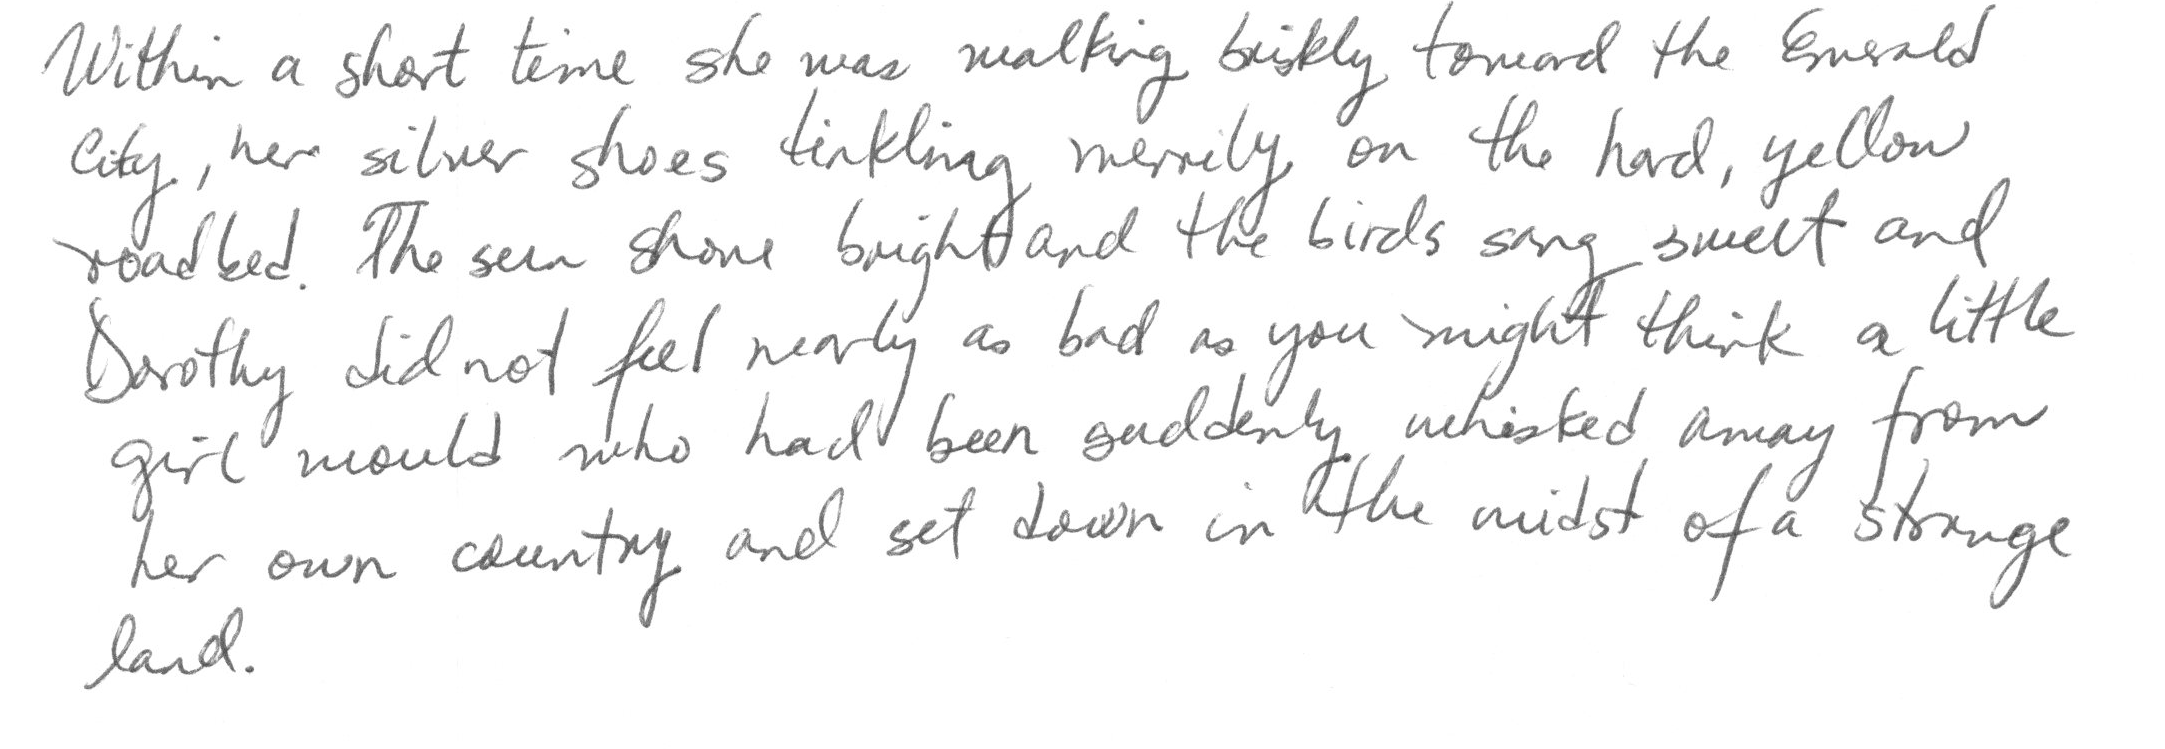 Within a short time she was walking briskly toward the Emerald
City, her silver shoes tinkling merrily on the hard, yellow
roadbed. The sun shone bright and the birds sang sweet and
Dorothy did not feel nearly as bad as you might think a little
girl would who had been suddenly whisked away from
her own country and set down in the midst of a strange
land.